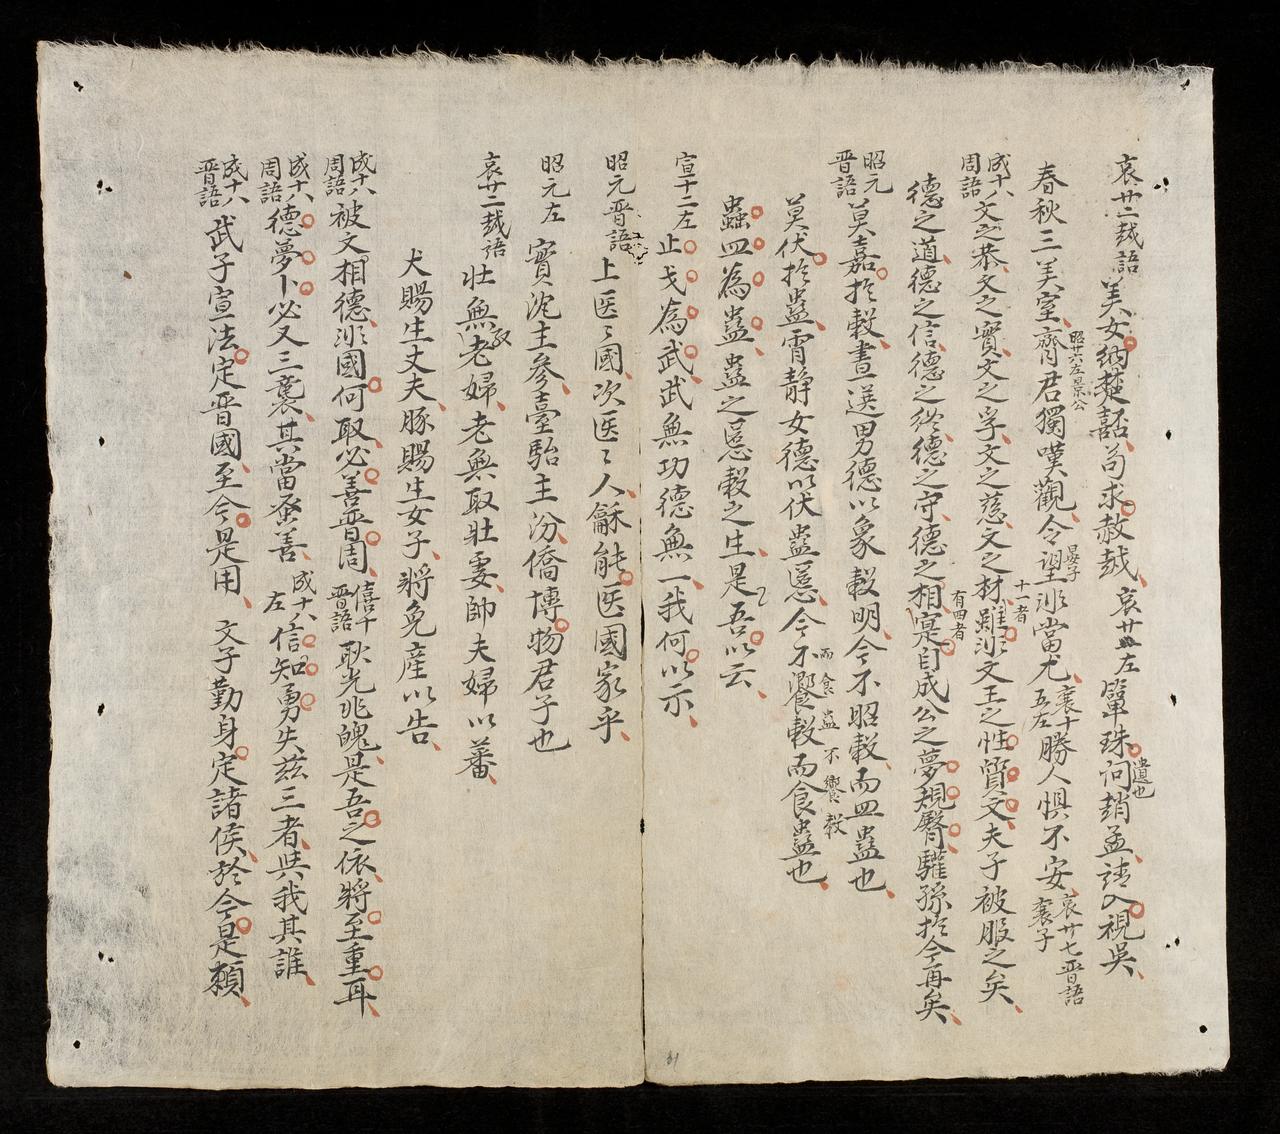 哀廿二越語 美女納楚語苟求赦越 哀廿左 簞珠问趙孟請入視吳
遺也
春秋三美室齊君獨嘆觀令望泖當尤 襄十五左 勝人惧不安 哀廿七晋語襄子
昭廿六左景公
晏子
成十八周語 文之恭文之實文之孚文之慈文之材雖泖文王之性質文夫子被服之矣
十一者
德之道德之信德之終德之守德之相寔自成公之夢規臀驩孫扵今再矣
有四者
昭元晋語 莫嘉扵穀晝送男德以象穀明今不昭穀而皿蠱也
莫伏扵蠱宵静女德以伏蠱慝今不饗穀而食蠱也
而食蠱不饗穀
蟲皿為蠱蠱之慝穀之生是吾以云
宣十二左 止戈為武武無功德無一我何以示
昭元晋語 上医ミ國次医ミ人龢能医國家乎
昭元左 實沈主参臺駘主汾僑博物君子也
哀廿二越語 壮無老婦老無取壮妻帥夫婦以蕃
犬賜生丈夫豚賜生女子將免産以告
成十八周語 被文相德泖國何取必善晋周 僖二十晋語 耿光兆魄是吾之依將至重耳
成十八周語 德夢卜必又三襲其當蚤善 成十八左 信知勇失兹三者與我其誰
成十八晋語 武子宣法定晋國至今是用 文子勤身定諸侯於今是頼